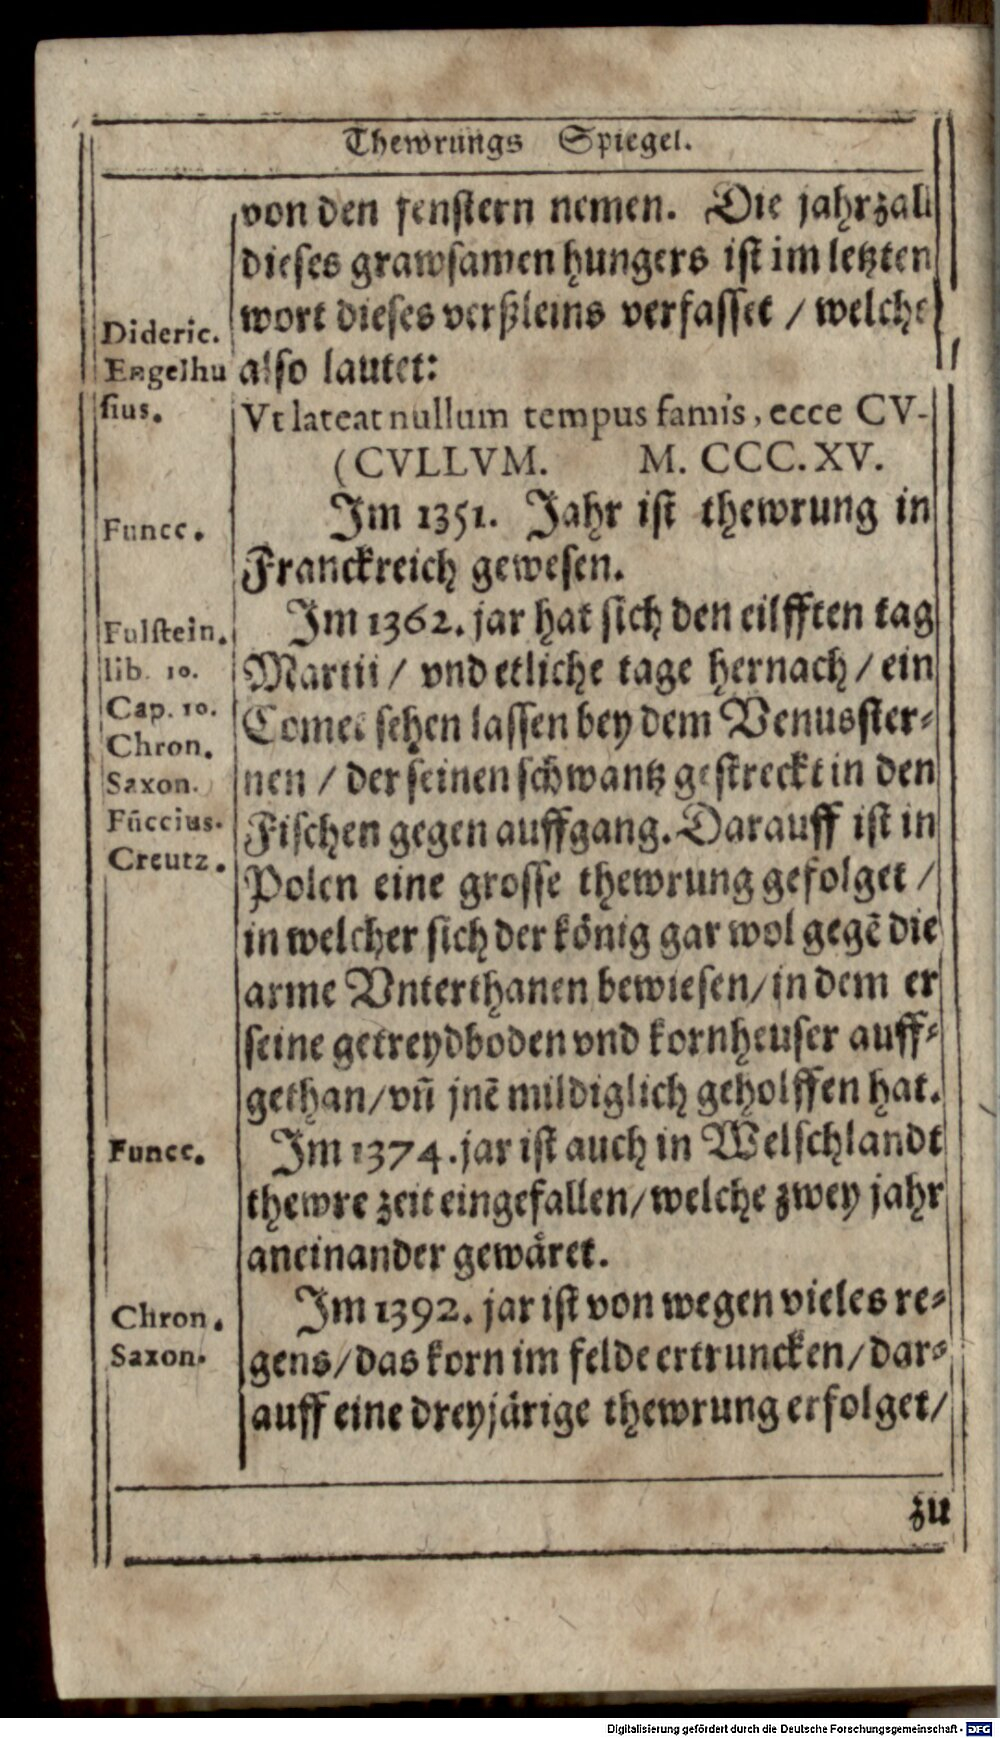 Thewrungs Spiegel.
von den fenstern nemen. Die jahrzall
dieses grawsamen hungers ist im letzten
wort dieses verßleins verfasset / welche
also lautet:
Dideric.
Engelhu
sius.
Vt lateat nullum tempus famis, ecce CV-
(CVLLVM. M. CCC. XV.
Im 1351. Jahr ist thewrung in
Franckreich gewesen.
Funcc.
Im 1362. jar hat sich den eilfften tag
Martii / vnd etliche tage hernach / ein
Comet sehen lassen bey dem Venusster-
nen / der seinen schwantz gestreckt in den
Fischen gegen auffgang. Darauff ist in
Polen eine grosse thewrung gefolget /
in welcher sich der könig gar wol gegē die
arme Vnterthanen bewiesen / in dem er
seine getreydboden vnd kornheuser auff-
gethan / vn̄ jnē mildiglich geholffen hat.
Fulstein.
lib. 10.
Cap. 10.
Chron.
Saxon.
Fūccius.
Creutz.
Im 1374. jar ist auch in Welschlandt
thewre zeit eingefallen / welche zwey jahr
aneinander gewäret.
Funcc.
Im 1392. jar ist von wegen vieles re-
gens / das korn im felde ertruncken / dar-
auff eine dreyjärige thewrung erfolget /
Chron.
Saxon.
zu
Digitalisierung gefördert durch die Deutsche Forschungsgemeinschaft - DFG